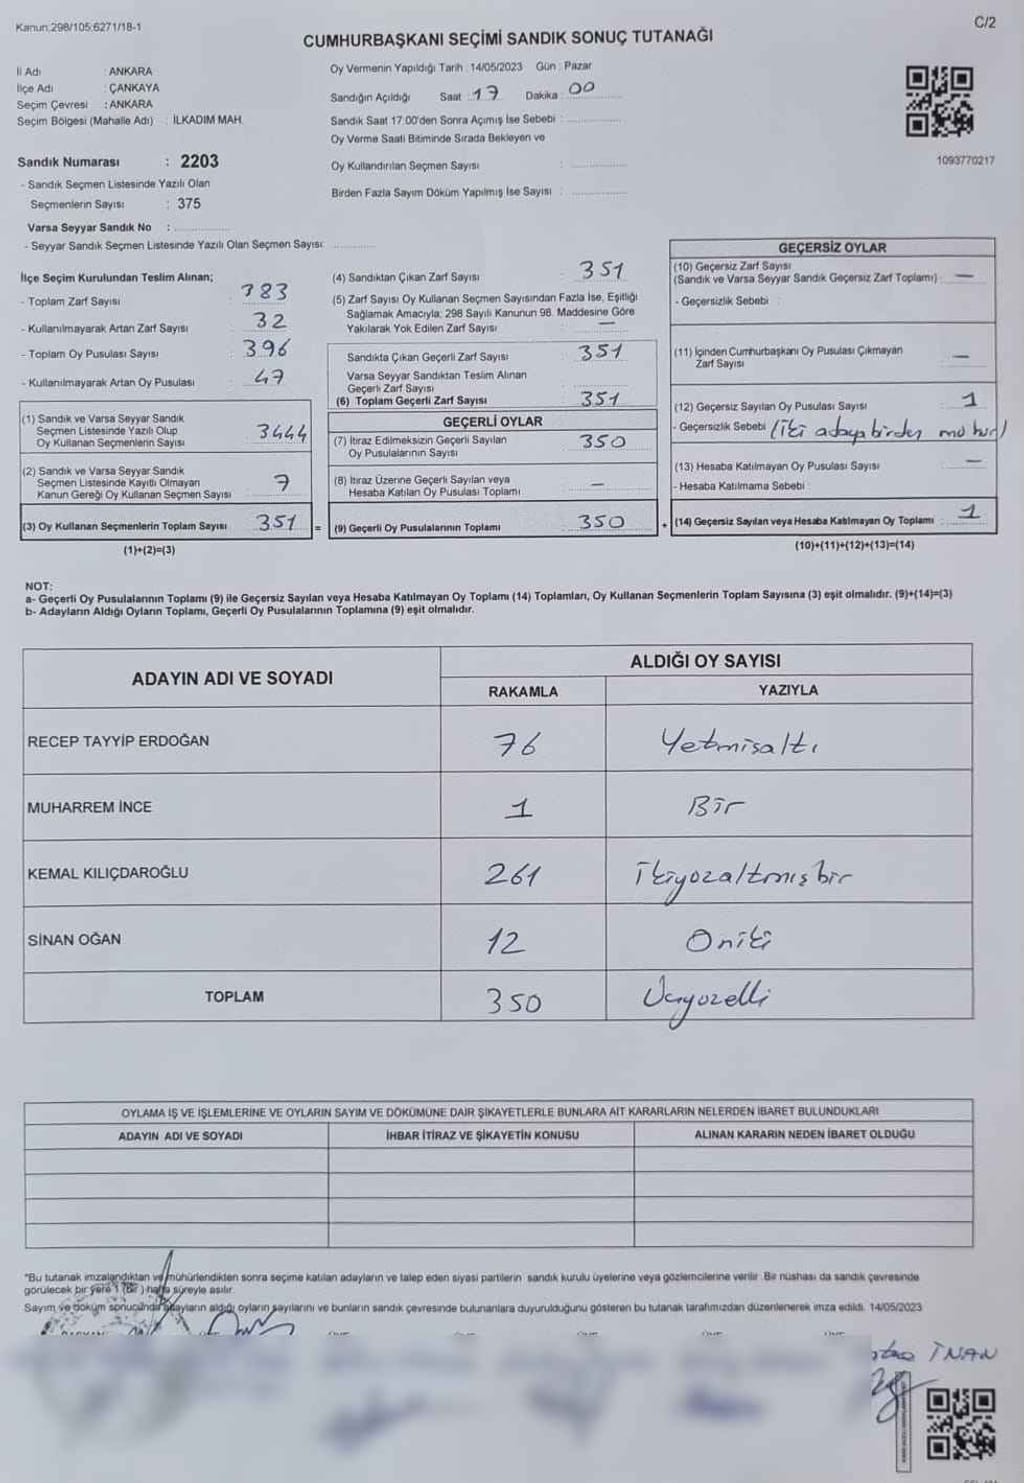 Kanun:298/105;6271/18-1
C/2
CUMHURBAŞKANI SEÇİMİ SANDIK SONUÇ TUTANAĞI
İl Adı : ANKARA
İlçe Adı : ÇANKAYA
Seçim Çevresi : ANKARA
Seçim Bölgesi (Mahalle Adı) : İLKADIM MAH.
Sandık Numarası : 2203
- Sandık Seçmen Listesinde Yazılı Olan
Seçmenlerin Sayısı : 375
Varsa Seyyar Sandık No :
- Seyyar Sandık Seçmen Listesinde Yazılı Olan Seçmen Sayısı:
Oy Vermenin Yapıldığı Tarih :14/05/2023 Gün : Pazar
Sandığın Açıldığı Saat : 17 Dakika : 00
Sandık Saat 17:00'den Sonra Açımış İse Sebebi :
Oy Verme Saati Bitiminde Sırada Bekleyen ve
Oy Kullandırılan Seçmen Sayısı :
Birden Fazla Sayım Döküm Yapılmış İse Sayısı :
1093770217
İlçe Seçim Kurulundan Teslim Alınan;
- Toplam Zarf Sayısı : 383
- Kullanılmayarak Artan Zarf Sayısı : 32
- Toplam Oy Pusulası Sayısı : 396
- Kullanılmayarak Artan Oy Pusulası : 47
(1) Sandık ve Varsa Seyyar Sandık
Seçmen Listesinde Yazılı Olup
Oy Kullanan Seçmenlerin Sayısı : 3444
(2) Sandık ve Varsa Seyyar Sandık
Seçmen Listesinde Kayıtlı Olmayan
Kanun Gereği Oy Kullanan Seçmen Sayısı : 7
(3) Oy Kullanan Seçmenlerin Toplam Sayısı : 351
(1)+(2)=(3)
(4) Sandıktan Çıkan Zarf Sayısı : 351
(5) Zarf Sayısı Oy Kullanan Seçmen Sayısından Fazla İse, Eşitliği
Sağlamak Amacıyla; 298 Sayılı Kanunun 98. Maddesine Göre
Yakılarak Yok Edilen Zarf Sayısı : —
Sandıkta Çıkan Geçerli Zarf Sayısı : 351
Varsa Seyyar Sandıktan Teslim Alınan
Geçerli Zarf Sayısı :
(6) Toplam Geçerli Zarf Sayısı : 351
GEÇERLİ OYLAR
(7) İtiraz Edilmeksizin Geçerli Sayılan
Oy Pusulalarının Sayısı : 350
(8) İtiraz Üzerine Geçerli Sayılan veya
Hesaba Katılan Oy Pusulası Toplamı : —
= (9) Geçerli Oy Pusulalarının Toplamı : 350
GEÇERSİZ OYLAR
(10) Geçersiz Zarf Sayısı
(Sandık ve Varsa Seyyar Sandık Geçersiz Zarf Toplamı) : —
- Geçersizlik Sebebi :
(11) İçinden Cumhurbaşkanı Oy Pusulası Çıkmayan
Zarf Sayısı : —
(12) Geçersiz Sayılan Oy Pusulası Sayısı : 1
- Geçersizlik Sebebi : (iki adaya birden mühür)
(13) Hesaba Katılmayan Oy Pusulası Sayısı : —
- Hesaba Katılmama Sebebi :
+ (14) Geçersiz Sayılan veya Hesaba Katılmayan Oy Toplamı : 1
(10)+(11)+(12)+(13)=(14)
NOT:
a- Geçerli Oy Pusulalarının Toplamı (9) ile Geçersiz Sayılan veya Hesaba Katılmayan Oy Toplamı (14) Toplamları, Oy Kullanan Seçmenlerin Toplam Sayısına (3) eşit olmalıdır. (9)+(14)=(3)
b- Adayların Aldığı Oyların Toplamı, Geçerli Oy Pusulalarının Toplamına (9) eşit olmalıdır.
ADAYIN ADI VE SOYADI
ALDIĞI OY SAYISI
RAKAMLA YAZIYLA
RECEP TAYYİP ERDOĞAN 76 Yetmişaltı
MUHARREM İNCE 1 Bir
KEMAL KILIÇDAROĞLU 261 İkiyüzaltmışbir
SİNAN OĞAN 12 Oniki
TOPLAM 350 Üçyüzelli
OYLAMA İŞ VE İŞLEMLERİNE VE OYLARIN SAYIM VE DÖKÜMÜNE DAİR ŞİKAYETLERLE BUNLARA AİT KARARLARIN NELERDEN İBARET BULUNDUKLARI
ADAYIN ADI VE SOYADI İHBAR İTİRAZ VE ŞİKAYETİN KONUSU ALINAN KARARIN NEDEN İBARET OLDUĞU
*Bu tutanak imzalandıktan ve mühürlendikten sonra seçime katılan adayların ve talep eden siyasi partilerin sandık kurulu üyelerine veya gözlemcilerine verilir. Bir nüshası da sandık çevresinde
görülecek bir yere 1 (Bir) hafta süreyle asılır.
Sayım ve döküm sonucunda adayların aldığı oyların sayılarını ve bunların sandık çevresinde bulunanlara duyurulduğunu gösteren bu tutanak tarafımızdan düzenlenerek imza edildi. 14/05/2023
İNAN